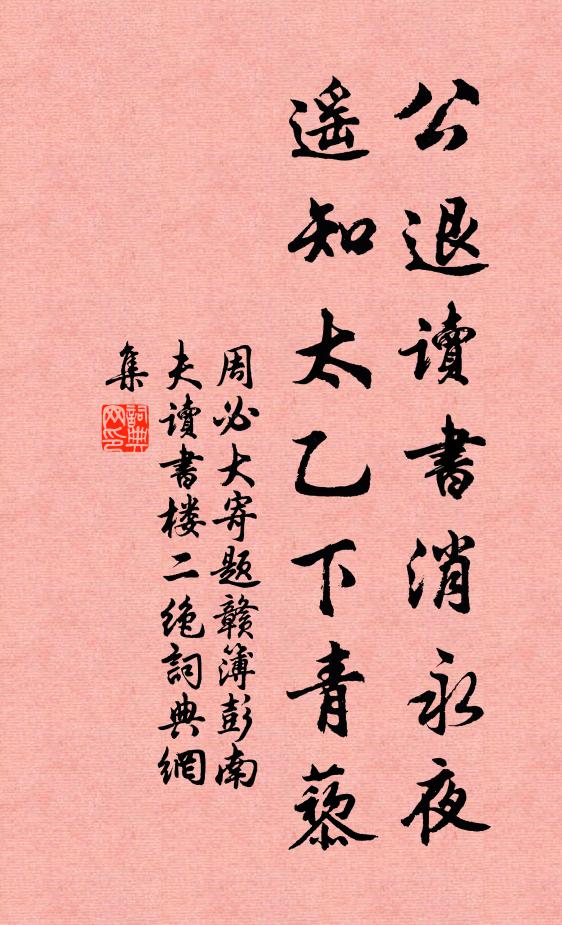 公退讀書消永夜
遥知太乙下青藜
周必大寄题贛簿彭南
夫讀書楼二绝詞典網
集
詞典网印